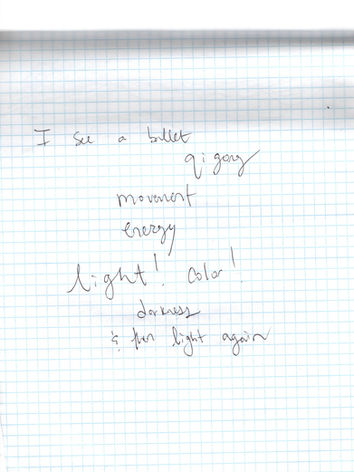 I see a bullet
qi gong
movement
energy
light! color!
darkness
& then light again